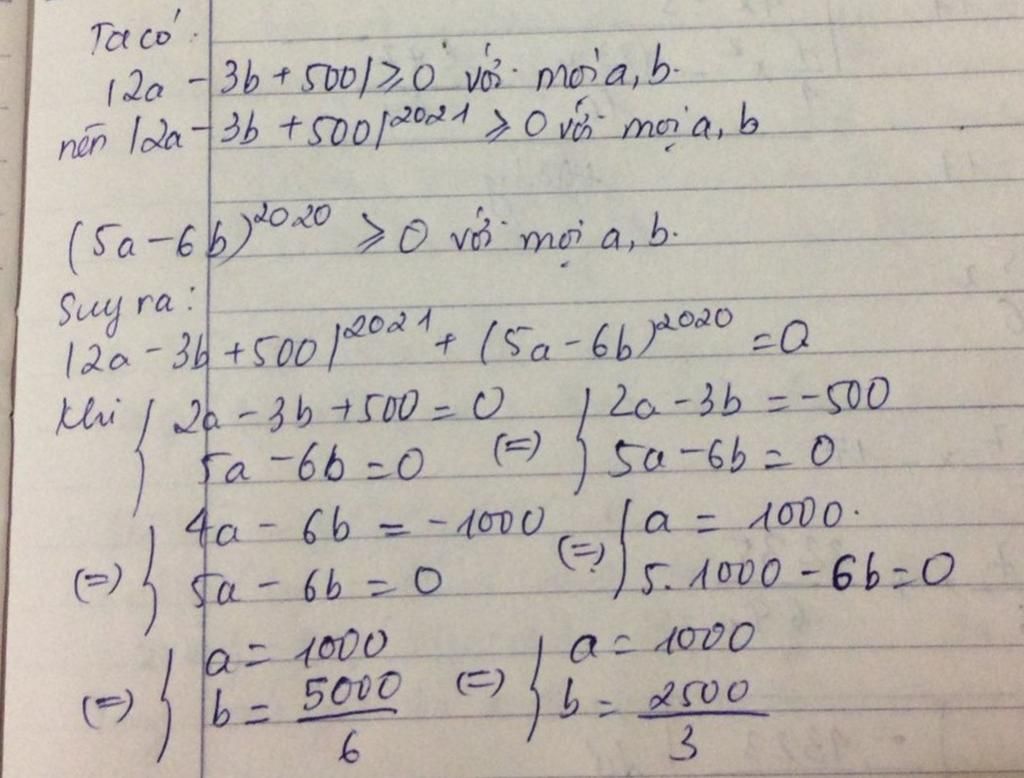 Ta có:
|2a - 3b + 500| ≥ 0 với mọi a, b.
nên |2a - 3b + 500|^2021 ≥ 0 với mọi a, b
(5a - 6b)^2020 ≥ 0 với mọi a, b.
Suy ra:
|2a - 3b + 500|^2021 + (5a - 6b)^2020 = 0
Khi { 2a - 3b + 500 = 0 (=) { 2a - 3b = -500
5a - 6b = 0 5a - 6b = 0
(=) { 4a - 6b = -1000 (=) { a = 1000.
5a - 6b = 0 5. 1000 - 6b = 0
(=) { a = 1000 (=) { a = 1000
b = 5000/6 b = 2500/3